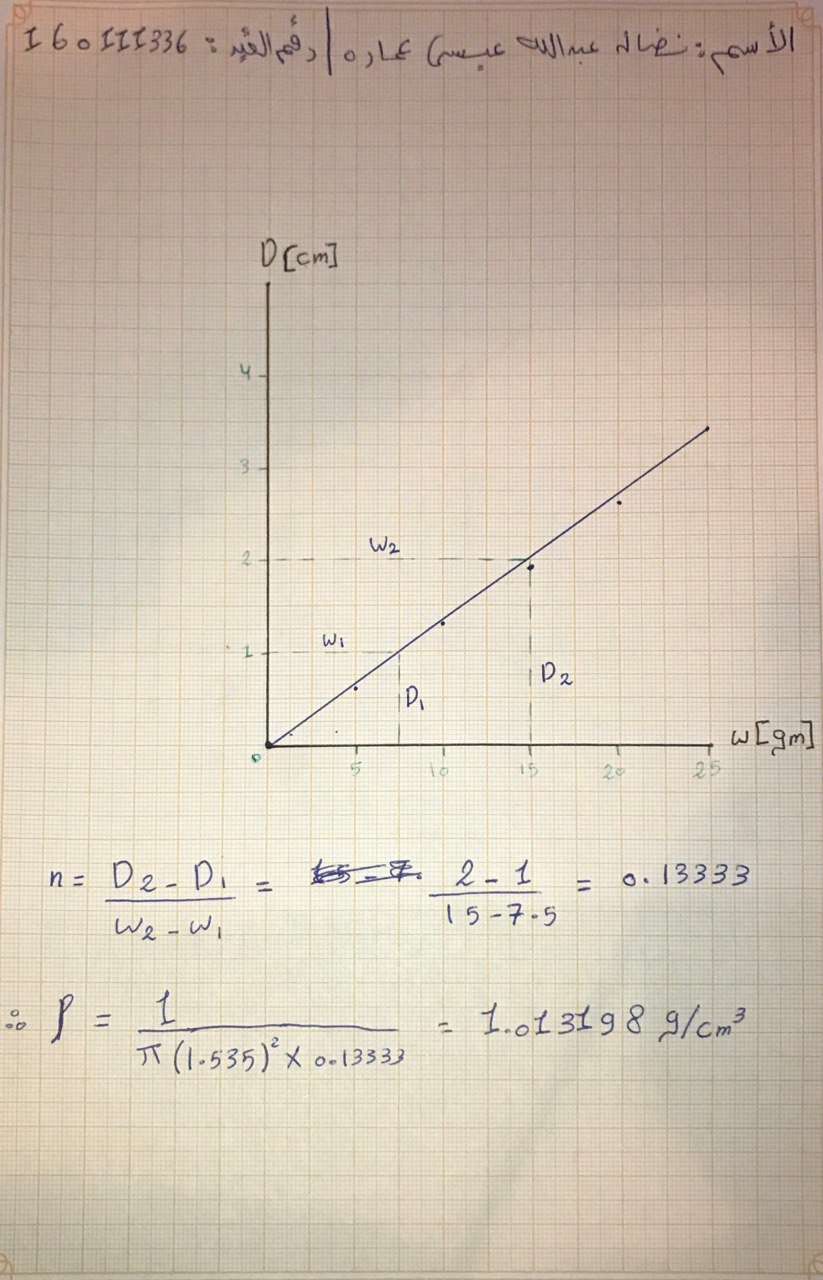 الأسم : نضال عبدالله عيسى عماره | رقم القيد : 160111336
D [cm]
4
3
W2
2
W1
1
D2
D1
w [gm]
0 5 10 15 20 25
n = D2 - D1 / W2 - W1 = 2 - 1 / 15 - 7.5 = 0.13333
∴ ρ = 1 / π (1.535)² × 0.13333 = 1.013198 g/cm³